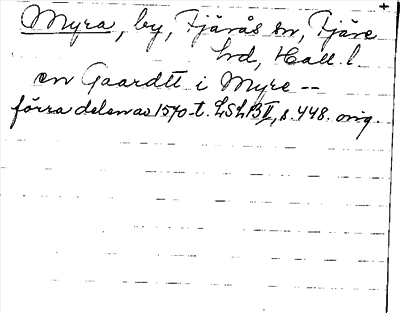 Myra, by, Fjärås sn, Fjäre
hd, Hall. l.
en Gaardtt i Myre --
förra delen av 1570-t. LSLB II, s. 448. orig.